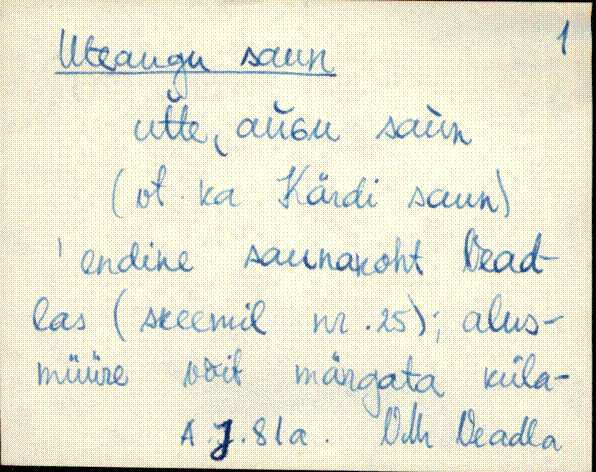 1
Uteaugu saun
ut̆te‿au̮ɢu sau̮n
(vt. ka Kärdi saun)
' endine saunakoht Vead-
las (skeemil nr. 25); alus-
müüre võit märgata küla-
A.J. 81a. Vll Veadla